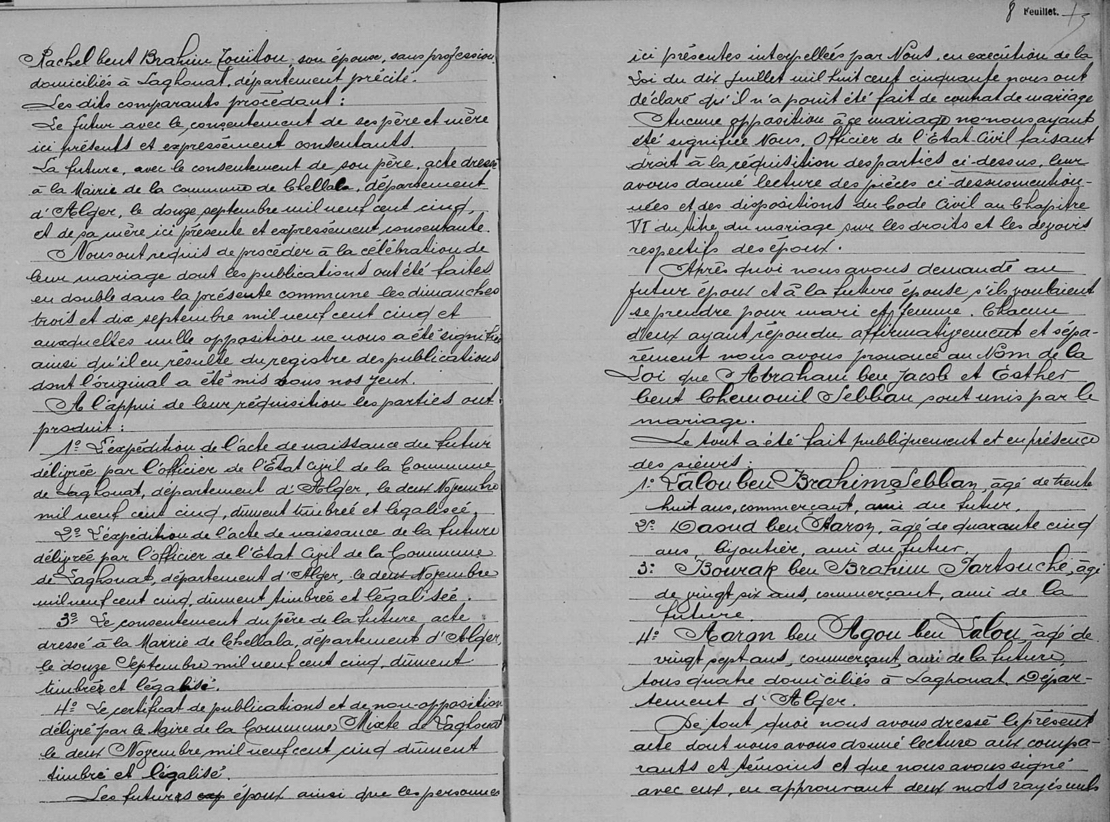 Rachel bent Brahim Touitou, son épouse, sans profession
domiciliés à Laghouat, département précité.
Les dits comparants procédant :
Le futur avec le consentement de ses père et mère
ici présents et expressément consentants.
La future, avec le consentement de son père, acte dressé
à la Mairie de la Commune de Chellala, département
d'Alger, le douze septembre mil neuf cent cinq,
et de sa mère ici présente et expressément consentante.
Nous ont requis de procéder à la célébration de
leur mariage dont les publications ont été faites
en double dans la présente commune les dimanches
trois et dix septembre mil neuf cent cinq et
auxquelles nulle opposition ne nous a été signifiée
ainsi qu'il en résulte du registre des publications
dont l'original a été mis sous nos yeux.
A l'appui de leur réquisition les parties ont
produit :
1° L'expédition de l'acte de naissance du futur
délivrée par l'officier de l'Etat Civil de la Commune
de Laghouat, département d'Alger, le deux Novembre
mil neuf cent cinq, dûment timbrée et légalisée,
2° L'expédition de l'acte de naissance de la future
délivrée par l'officier de l'Etat Civil de la Commune
de Laghouat, département d'Alger, le deux Novembre
mil neuf cent cinq, dûment timbrée et légalisée.
3° Le consentement du père de la future, acte
dressé à la Mairie de Chellala, département d'Alger,
le douze Septembre mil neuf cent cinq, dûment
timbrée et légalisé.
4° Le certificat de publications et de non-opposition
délivré par le Maire de la Commune Mixte de Laghouat
le deux Novembre mil neuf cent cinq dûment
timbré et légalisé.
Les futurs époux ainsi que les personnes
8 Feuillet.
ici présentes interpellées par Nous, en exécution de la
Loi du dix Juillet mil huit cent cinquante nous ont
déclaré qu'il n'a point été fait de contrat de mariage
Aucune opposition à ce mariage ne nous ayant
été signifiée Nous, Officier de l'Etat-Civil faisant
droit à la réquisition des parties ci-dessus, leur
avons donné lecture des pièces ci-dessus mention-
nées et des dispositions du Code Civil au Chapitre
VI du titre du mariage sur les droits et les devoirs
respectifs des époux.
Après quoi nous avons demandé au
futur époux et à la future épouse s'ils voulaient
se prendre pour mari et femme. Chacun
d'eux ayant répondu affirmativement et sépa-
rément nous avons prononcé au Nom de la
Loi que Abraham ben Jacob et Esther
bent Chemouil Sebban sont unis par le
mariage.
Le tout a été fait publiquement et en présence
des sieurs :
1° Lalou ben Brahim Sebban, âgé de trente
huit ans, commerçant, ami du futur.
2° Daoud ben Aaron, âgé de quarante cinq
ans, bijoutier, ami du futur,
3° Bourak ben Brahim Partouche, âgé
de vingt six ans, commerçant, ami de la
future.
4° Aaron ben Agou ben Lalou, âgé de
vingt sept ans, commerçant, ami de la future,
tous quatre domiciliés à Laghouat, Dépar-
tement d'Alger.
De tout quoi nous avons dressé le présent
acte dont nous avons donné lecture aux compa-
rants et témoins et que nous avons signé
avec eux, en approuvant deux mots rayés nuls